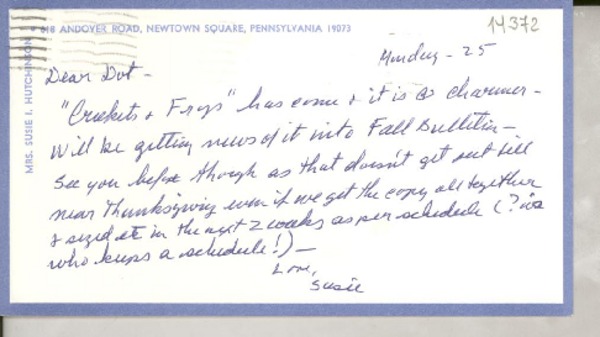 618 ANDOVER ROAD, NEWTOWN SQUARE, PENNSYLVANIA 19073
MRS. SUSIE I. HUTCHINSON
14372
Monday - 25
Dear Dot -
"Crickets + Frogs" has come + it is a charmer -
Will be getting news of it into Fall Bulletin -
See you before though as that doesn't get out till
near Thanksgiving even if we get the copy all together
& sized etc in the next 2 weeks as per schedule (?
who keeps a schedule!) -
Love,
Susie